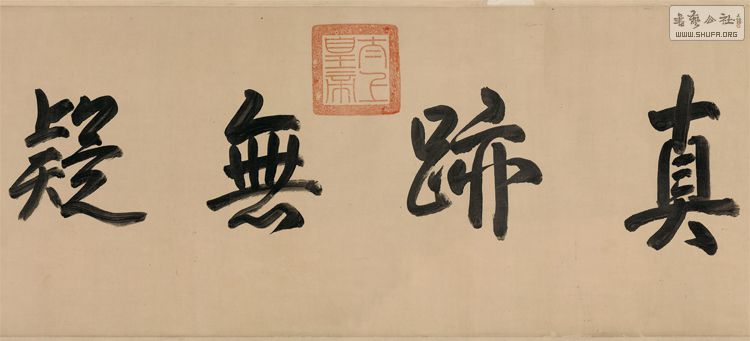 真跡無疑
太上皇帝
書藝公社
WWW.SHUFA.ORG